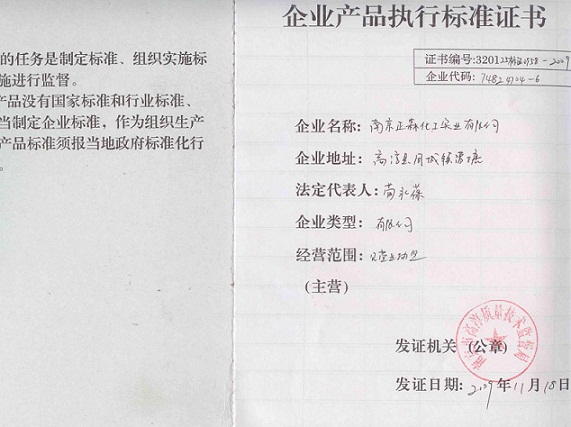 的任务是制定标准、组织实施标
施进行监督。
产品没有国家标准和行业标准、
当制定企业标准，作为组织生产
产品标准须报当地政府标准化行
。
企业产品执行标准证书
证书编号:320125 -2009
企业代码: -6
企业名称: 南京正森化工实业有限公司
企业地址: 高淳县
法定代表人:
企业类型: 有限公司
经营范围:
(主营)
发证机关 (公章)
高淳质量技术监督局
发证日期: 2009年11月18日